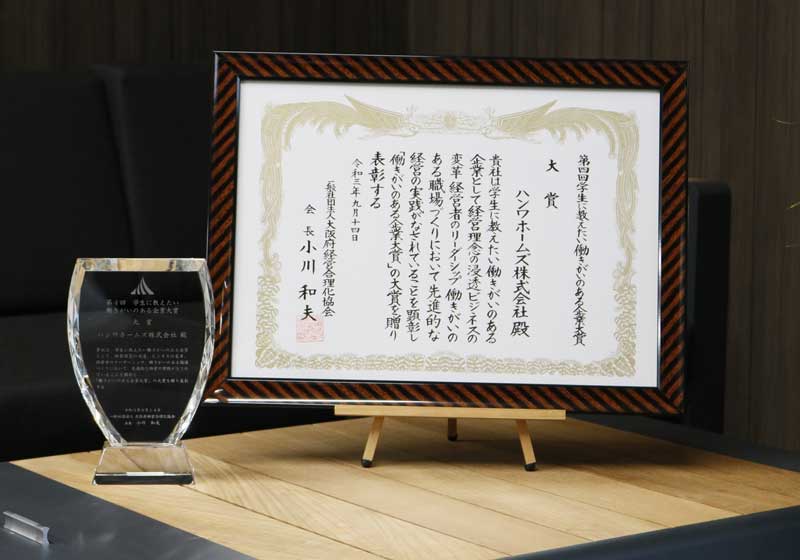 第四回学生に教えたい働きがいのある企業大賞
大賞
ハンワホームズ株式会社 殿
貴社は学生に教えたい働きがいのある
企業として経営理念の浸透ビジネスの
変革 経営者のリーダーシップ 働きがいの
ある職場づくりにおいて先進的な
経営の実践がなされていることを顕彰し
「働きがいのある企業大賞」の大賞を贈り
表彰する
令和三年九月十四日
一般社団法人大阪府経営合理化協会
会長 小川 和夫
第4回 学生に教えたい
働きがいのある企業大賞
大賞
ハンワホームズ株式会社 殿
「働きがいのある企業大賞」の大賞を贈り表彰
する
令和3年9月14日
一般社団法人 大阪府経営合理化協会
会長 小川 和夫